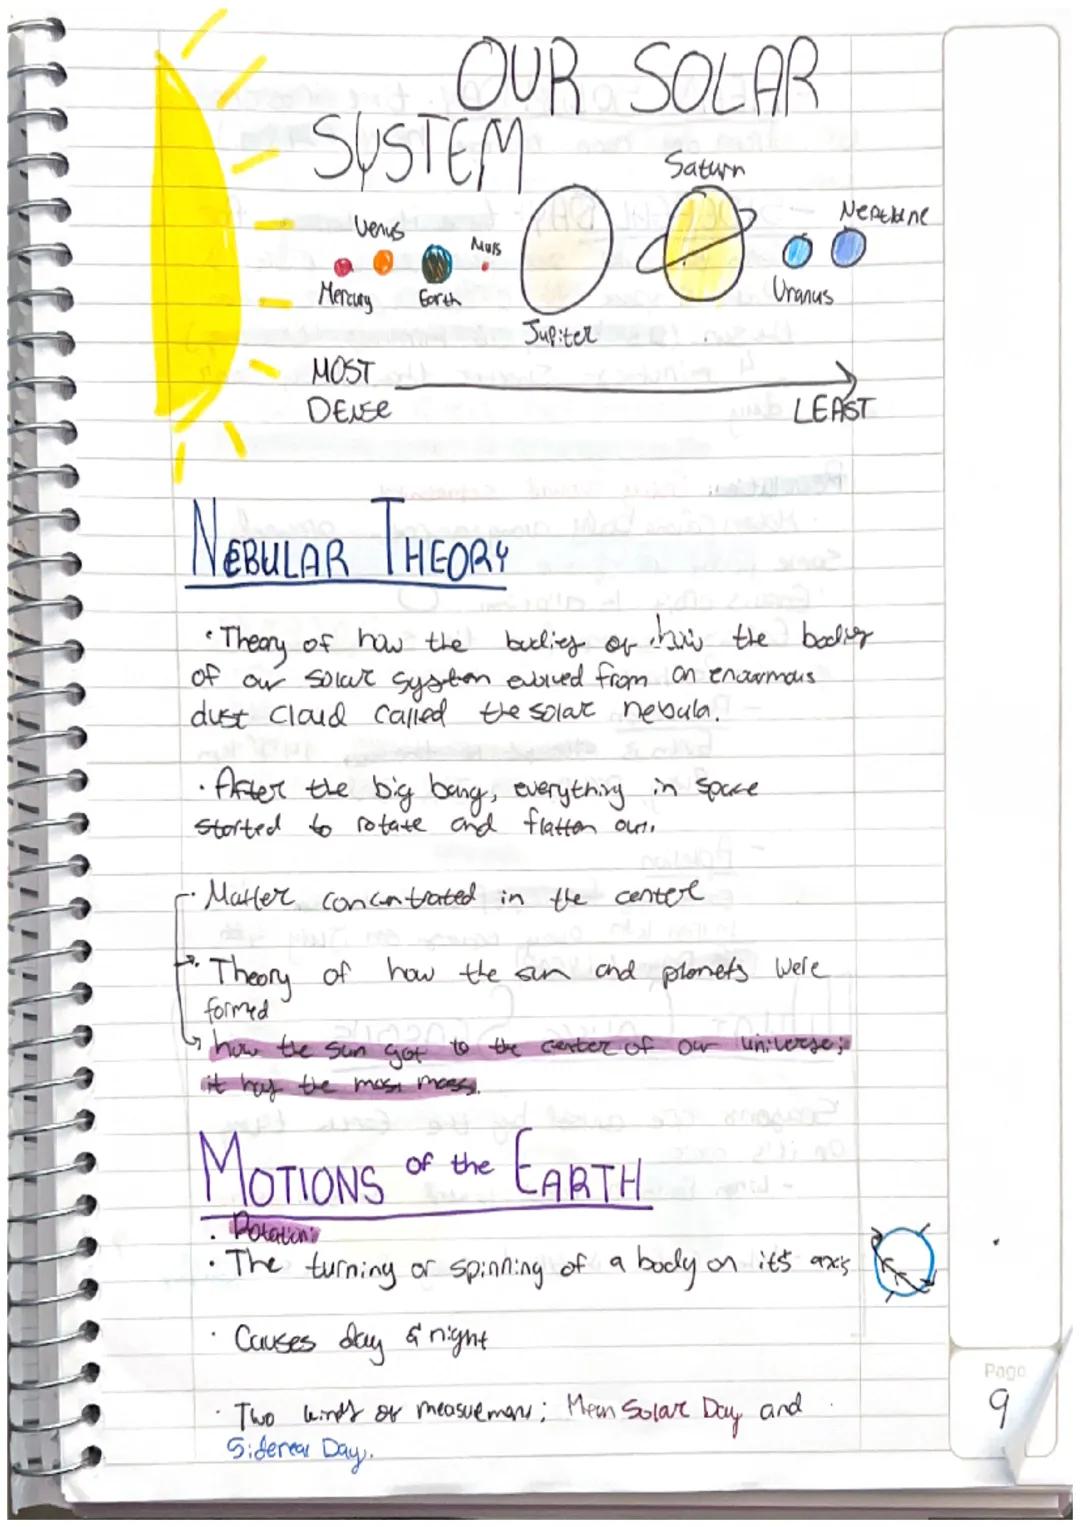 OUR SOLAR
SYSTEM
Saturn
Venus
Mars
Neptune
Mercury
Earth
Uranus
Jupiter
MOST
DENSE
LEAST
NEBULAR THEORY
• Theory of how the bodies of the bodies
of our solar system evolved from an enourmous
dust cloud called the solar nebula.
• After the big bang, everything in space
started to rotate and flatten out.
• Matter concentrated in the center
• Theory of how the sun and planets were
formed
how the sun got to the center of our universe;
it has the most mass.
MOTIONS of the EARTH
• Rotation:
• The turning or spinning of a body on its axis
• Causes day & night
• Two kinds of measurement; Mean Solar Day and
Sidereal Day.
Page
9